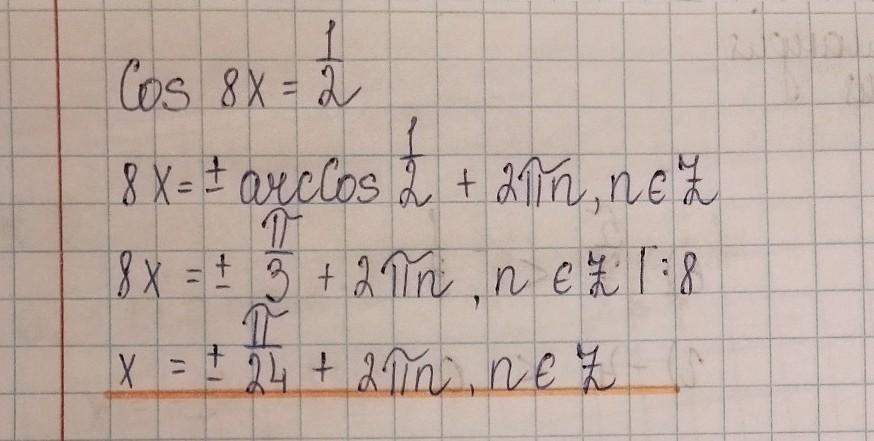 cos 8x = 1/2
8x = ± arccos 1/2 + 2πn, n ∈ Z
8x = ± π/3 + 2πn, n ∈ Z |:8
x = ± π/24 + 2πn, n ∈ Z